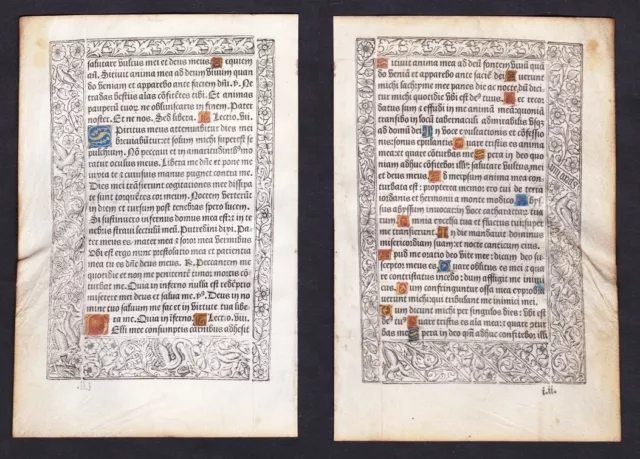 salutare vultus mei et deus meus. Sequtem
añ. Sitivit anima mea ad deum vivum quan
do veniã et apparebo ante faciem dñi. v. Ne
tradas bestiis alas cõfitentes tibi. Et animas
pauperũ tuoꝝ ne obliviscaris in finem. Pater
noster. Et ne nos. Sed libera. Lectio. vii.
Spiritus meus attenuabitur dies mei
breviabũtur: et solum michi superest se
pulchrum. Nõ peccavi: et in amaritudinibꝰ mo
ratur oculus meus. Libera me dñe et pone me
iuxta te: et cuiusvis manus pugnet contra me.
Dies mei trãsierunt cogitationes mee dissipa
te sunt torquẽtes cor meum. Noctem verterũt
in diem et rursum post tenebras spero lucem.
Si sustinuero infernus domus mea est: et in te
nebris stravi lectulũ meũ. Putredini dixi. Pa
ter meus es: mater mea et soror mea vermibus
Ubi est ergo nunc prestolatio mea et patientia
mea tu es dñe deus meus. R. Peccantem me
quotidie et non me penitentẽ timor mortis cõ
turbat me. Quia in inferno nulla est redẽptio
miserere mei deus et salva me. vꝰ. Deus in no
mine tuo salvum me fac et in virtute tua libe
ra me. Quia in inferno. Lectio. viii.
Pelli mee consumptis carnibus adhesit
Sitivit anima mea ad deũ fontem vivũ qua
do veniã et apparebo ante faciẽ dei. Fuerunt
michi lachryme mee panes die ac nocte dũ dici
tur michi quotidie vbi est deꝰ tuus. Hec recor
datus sum et effudi in me animã meã: quoniã
transibo in locum tabernaculi admirabilis vsqꝫ
ad domũ dei. In voce exultationis et cõfessio
nis: sonus epulantis. Quare tristis es anima
mea: et quare cõturbas me. Spera in deo quo
niam adhuc confitebor illi: salutare vultus mei
et deus meus. Ad meipsum anima mea con
turbata est: propterea memor ero tui de terra
iordanis et hermonii a monte modico. Abyssus
abyssum invocat: in voce catharactarum tua
rum. Omnia excelsa tua et fluctus tui: super
me transierunt. In die mandavit dominus
misericordiam suam: et nocte canticum eius.
Apud me oratio deo vite mee: dicam deo su
sceptor meus es. Quare oblitus es mei et qua
re contristatus incedo: dum affligit me inimi
cus. Dum confringuntur ossa mea: exproba
verunt michi qui tribulant me inimici mei.
Dum dicunt michi per singulos dies: vbi est
deꝰ tuꝰ. Quare tristis es aĩa mea: et quare ptur
bas me. Spera in deo qm̃ adhuc confitebor illi.
i.ii.